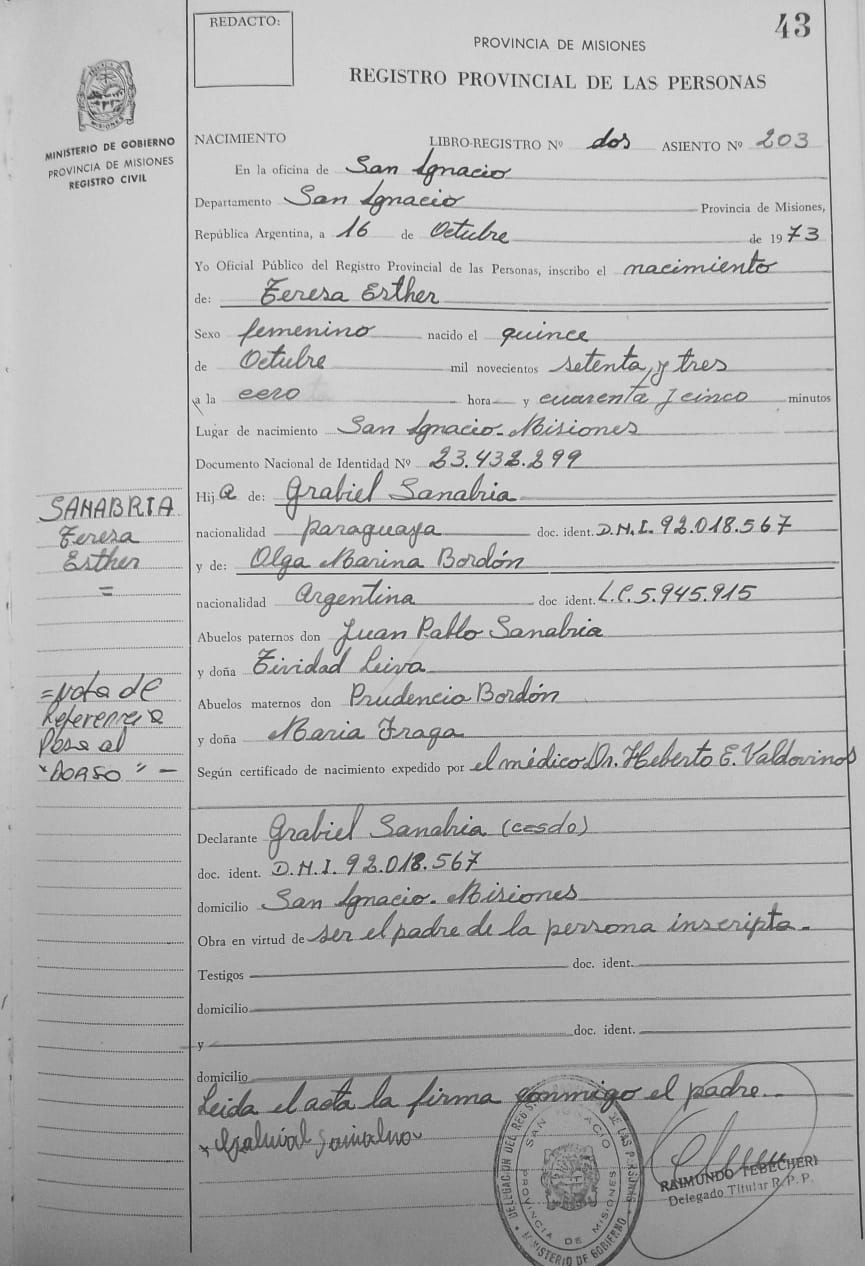 REDACTO:
43
PROVINCIA DE MISIONES
REGISTRO PROVINCIAL DE LAS PERSONAS
MINISTERIO DE GOBIERNO
PROVINCIA DE MISIONES
REGISTRO CIVIL
NACIMIENTO LIBRO-REGISTRO Nº dos ASIENTO Nº 203
En la oficina de San Ignacio
Departamento San Ignacio Provincia de Misiones,
República Argentina, a 16 de Octubre de 1973
Yo Oficial Público del Registro Provincial de las Personas, inscribo el nacimiento
de: Teresa Esther
Sexo femenino nacido el quince
de Octubre mil novecientos setenta y tres
a la cero hora y cuarenta y cinco minutos
Lugar de nacimiento San Ignacio - Misiones
Documento Nacional de Identidad Nº 23.438.299
Hija de: Grabiel Sanabria
nacionalidad paraguaya doc. ident. D.N.I. 92.018.567
y de: Olga Marina Bordón
nacionalidad Argentina doc ident. L.C. 5.945.915
Abuelos paternos don Juan Pablo Sanabria
y doña Tividad Leiva
Abuelos maternos don Prudencio Bordón
y doña Maria Fraga
Según certificado de nacimiento expedido por el médico Dr. Heberto E. Valdovinos
SANABRIA
Teresa
Esther
=
=Nota de
Referencia
Pasa al
"DORSO" -
Declarante Grabiel Sanabria (casdo)
doc. ident. D.N.I. 92.018.567
domicilio San Ignacio - Misiones
Obra en virtud de ser el padre de la persona inscripta.
Testigos doc. ident.
domicilio
y doc. ident.
domicilio
Leida el acta la firma conmigo el padre.
SAN IGNACIO
PROVINCIA DE MISIONES
DELEGACION DEL REG DE LAS PERSONAS
MINISTERIO DE GOBIERNO
RAIMUNDO TEBECHERI
Delegado Titular R. P. P.